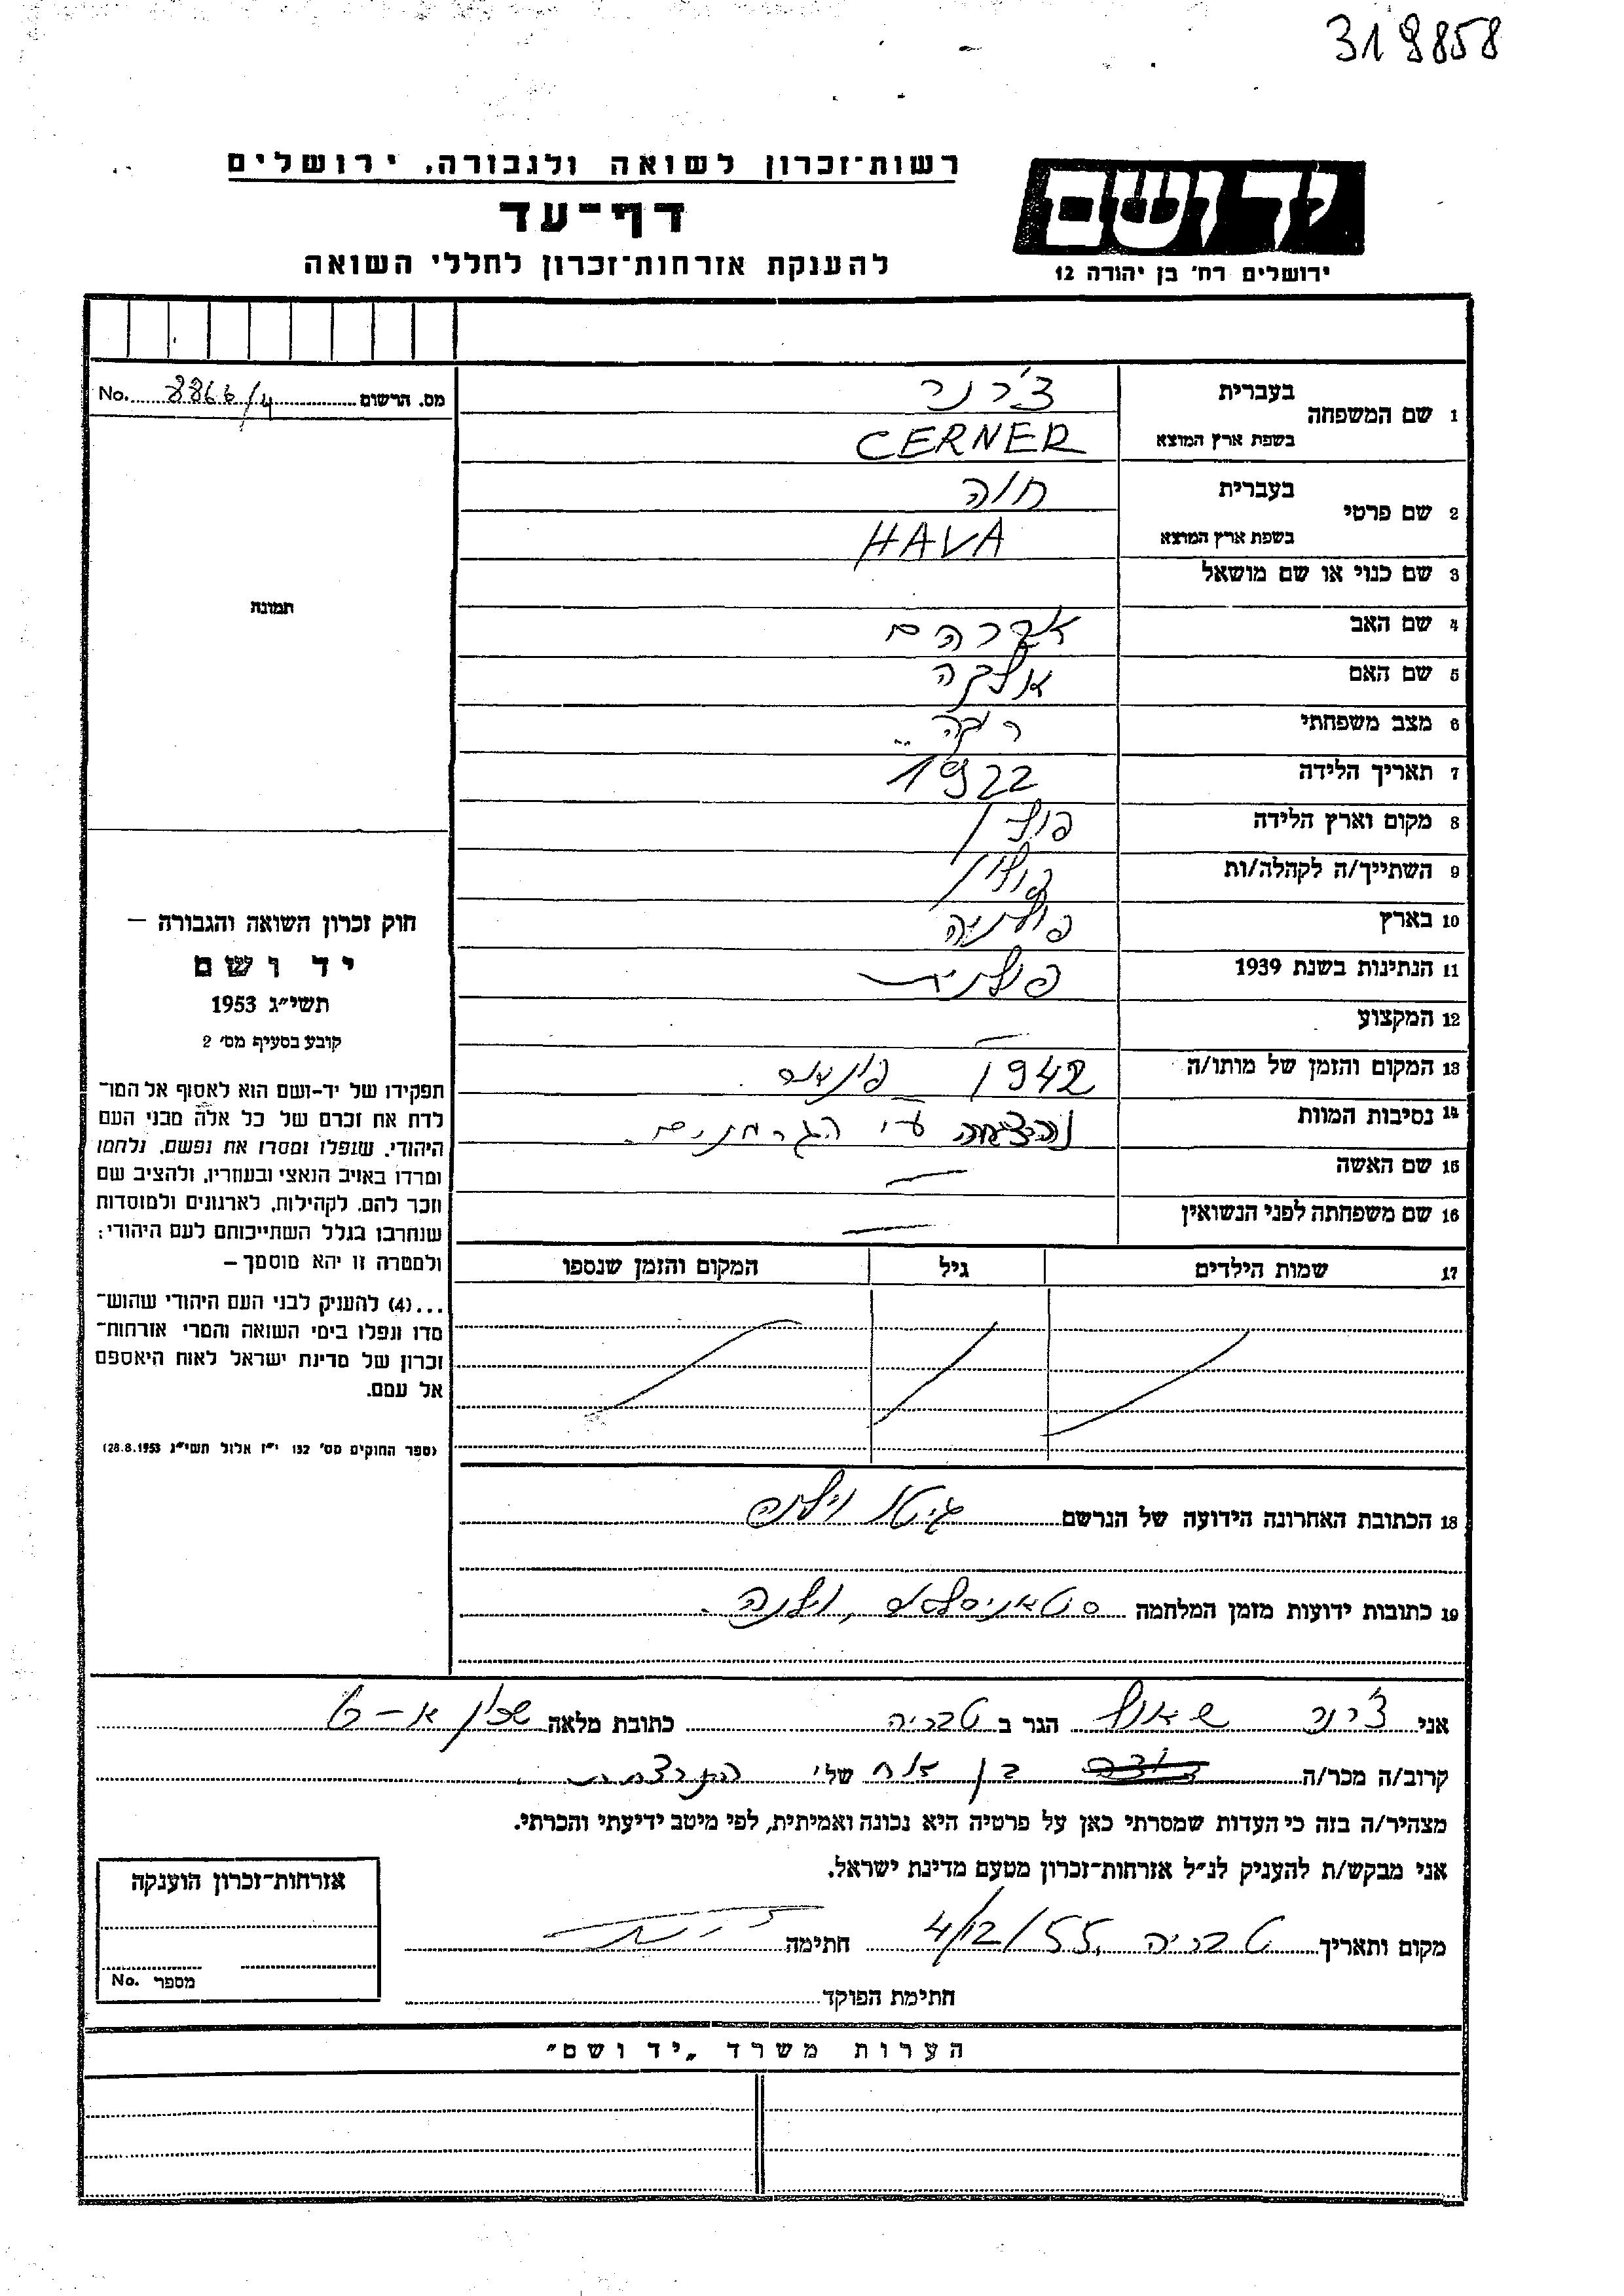 319858
רשות־זכרון לשואה ולגבורה, ירושלים
דף־עד
להענקת אזרחות־זכרון לחללי השואה
יד ושם
ירושלים רח' בן יהודה 12
מס. הרשום No. 8866/4
תמונה
חוק זכרון השואה והגבורה —
יד ושם
תשי״ג 1953
קובע בסעיף מס' 2
תפקידו של יד-ושם הוא לאסוף אל המו־
לדת את זכרם של כל אלה מבני העם
היהודי, שנפלו ומסרו את נפשם, נלחמו
ומרדו באויב הנאצי ובעוזריו, ולהציב שם
וזכר להם, לקהילות, לארגונים ולמוסדות
שנחרבו בגלל השתייכותם לעם היהודי;
ולמטרה זו יהא מוסמך —
...(4) להעניק לבני העם היהודי שהוש־
מדו ונפלו בימי השואה והמרי אזרחות־
זכרון של מדינת ישראל לאות היאספם
אל עמם.
(ספר החוקים מס' 132 י״ז אלול תשי״ג 28.8.1953)
1 שם המשפחה
בעברית צ'רנר
בשפת ארץ המוצא CERNER
2 שם פרטי
בעברית חוה
בשפת ארץ המוצא HAVA
3 שם כנוי או שם מושאל
4 שם האב אברהם
5 שם האם
6 מצב משפחתי
7 תאריך הלידה 1922
8 מקום וארץ הלידה
9 השתייך/ה לקהלה/ות
10 בארץ פולניה
11 הנתינות בשנת 1939 פולנית
12 המקצוע —
13 המקום והזמן של מותו/ה 1942
14 נסיבות המוות ע״י הגרמנים.
15 שם האשה —
16 שם משפחתה לפני הנשואין —
17 שמות הילדים גיל המקום והזמן שנספו
18 הכתובת האחרונה הידועה של הנרשם גיטו וילנה
19 כתובות ידועות מזמן המלחמה וילנה.
אני צ'רנר שאול הגר ב טבריה כתובת מלאה שכון א-ט
קרוב/ה מכר/ה בן אח של/י
מצהיר/ה בזה כי העדות שמסרתי כאן על פרטיה היא נכונה ואמיתית, לפי מיטב ידיעתי והכרתי.
אני מבקש/ת להעניק לנ״ל אזרחות-זכרון מטעם מדינת ישראל.
מקום ותאריך טבריה 4/12/55 חתימה
חתימת הפוקד
אזרחות-זכרון הוענקה
מספר No.
הערות משרד „יד ושם״